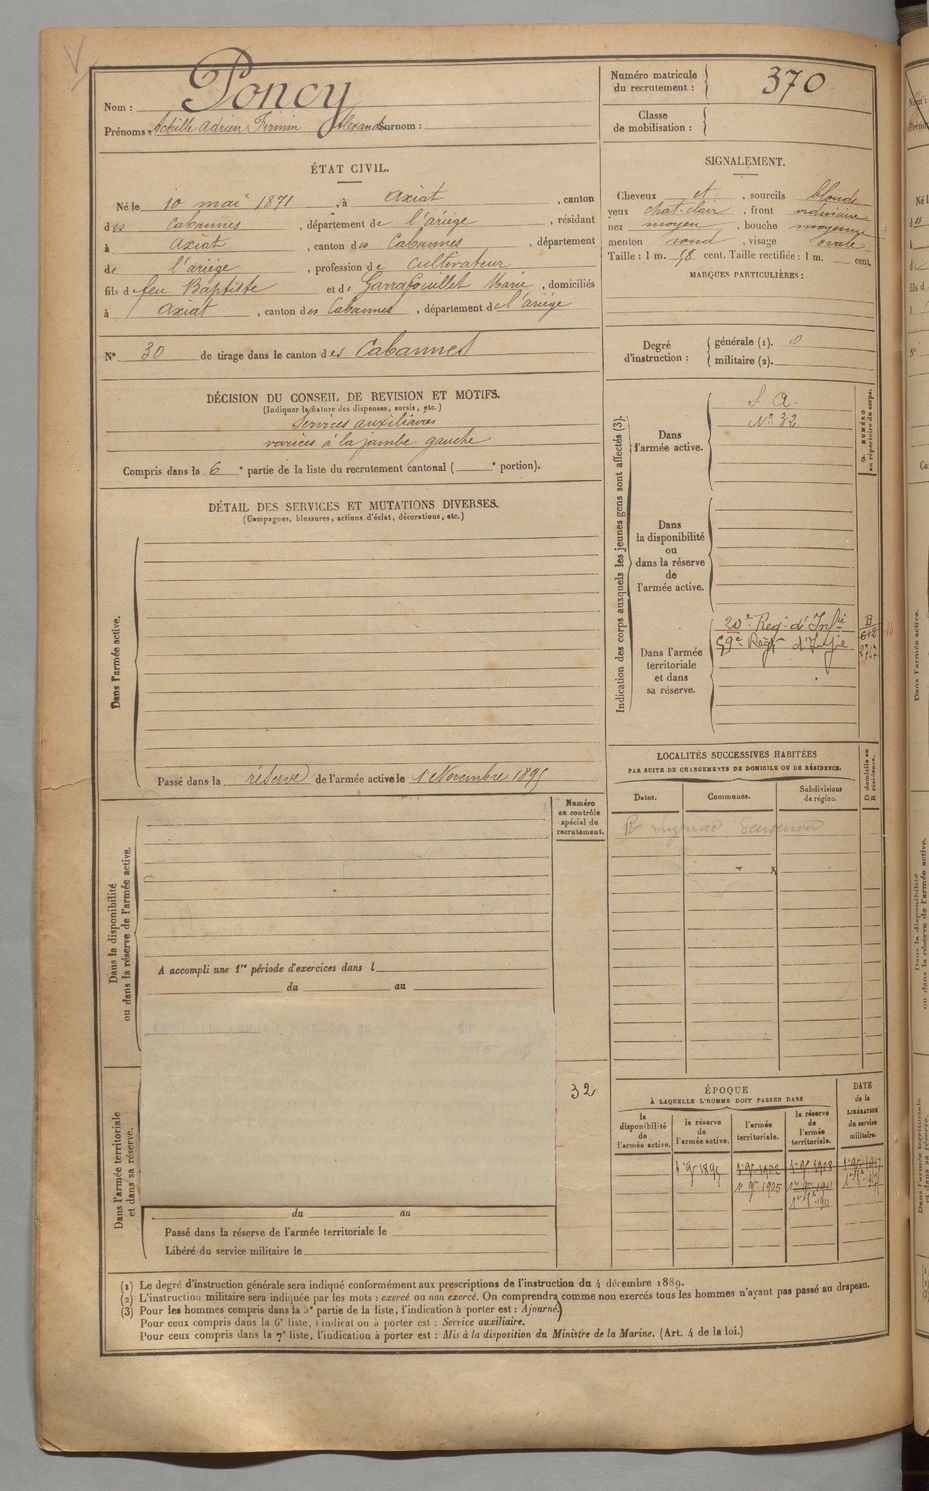 Nom : Poncy
Prénoms : Achille Adrien Firmin Alexandre Surnom :
Numéro matricule du recrutement : 370
Classe de mobilisation :
ÉTAT CIVIL.
Né le 10 mai 1871, à Axiat, canton
des Cabannes, département de l'ariège, résidant
à Axiat, canton des Cabannes, département
de l'ariège, profession de Cultivateur
fils de feu Baptiste et de Garrafouillet Marie, domiciliés
à Axiat, canton des Cabannes, département de l'ariège
N° 30 de tirage dans le canton des Cabannes
SIGNALEMENT.
Cheveux et, sourcils blonds
yeux chat-clair, front ordinaire
nez moyen, bouche moyenne
menton rond, visage ovale
Taille : 1 m. 58 cent. Taille rectifiée : 1 m. cent.
MARQUES PARTICULIÈRES :
Degré d'instruction :
générale (1). 0
militaire (2).
DÉCISION DU CONSEIL DE REVISION ET MOTIFS.
(Indiquer la nature des dispenses, sursis, etc.)
Services auxiliaires
varices à la jambe gauche
Compris dans la 6e partie de la liste du recrutement cantonal ( e portion).
DÉTAIL DES SERVICES ET MUTATIONS DIVERSES.
(Campagnes, blessures, actions d'éclat, décorations, etc.)
Dans l'armée active.
Passé dans la réserve de l'armée active le 1 Novembre 1895
Dans la disponibilité
ou dans la réserve de l'armée active.
Numéro
au contrôle
spécial du
recrutement.
A accompli une 1re période d'exercices dans l
du au
Dans l'armée territoriale
et dans sa réserve.
32
du au
Passé dans la réserve de l'armée territoriale le
Libéré du service militaire le
Indication des corps auxquels les jeunes gens sont affectés (3).
NUMÉRO
au répertoire du corps.
Dans
l'armée active.
S. A.
N° 32
Dans
la disponibilité
ou
dans la réserve
de
l'armée active.
Dans l'armée
territoriale
et dans
sa réserve.
20e Regt d'Infie
59e Régt d'Infie
LOCALITÉS SUCCESSIVES HABITÉES
PAR SUITE DE CHANGEMENTS DE DOMICILE OU DE RÉSIDENCE.
D domicile ou
R résidence.
Dates.
Communes.
Subdivisions
de région.
ÉPOQUE
À LAQUELLE L'HOMME DOIT PASSER DANS
DATE
de la
LIBÉRATION
du service
militaire.
la
disponibilité
de
l'armée active.
la réserve
de
l'armée active.
l'armée
territoriale.
la réserve
de
l'armée
territoriale.
1er 9bre 1895
1er 9bre 1902
1er 9bre 1908
1er 9bre 1917
1er 9bre 1905
1er 9bre 1911
(1) Le degré d'instruction générale sera indiqué conformément aux prescriptions de l'instruction du 4 décembre 1889.
(2) L'instruction militaire sera indiquée par les mots : exercé ou non exercé. On comprendra comme non exercés tous les hommes n'ayant pas passé au drapeau.
(3) Pour les hommes compris dans la 5e partie de la liste, l'indication à porter est : Ajourné.
Pour ceux compris dans la 6e liste, l'indication à porter est : Service auxiliaire.
Pour ceux compris dans la 7e liste, l'indication à porter est : Mis à la disposition du Ministre de la Marine. (Art. 4 de la loi.)